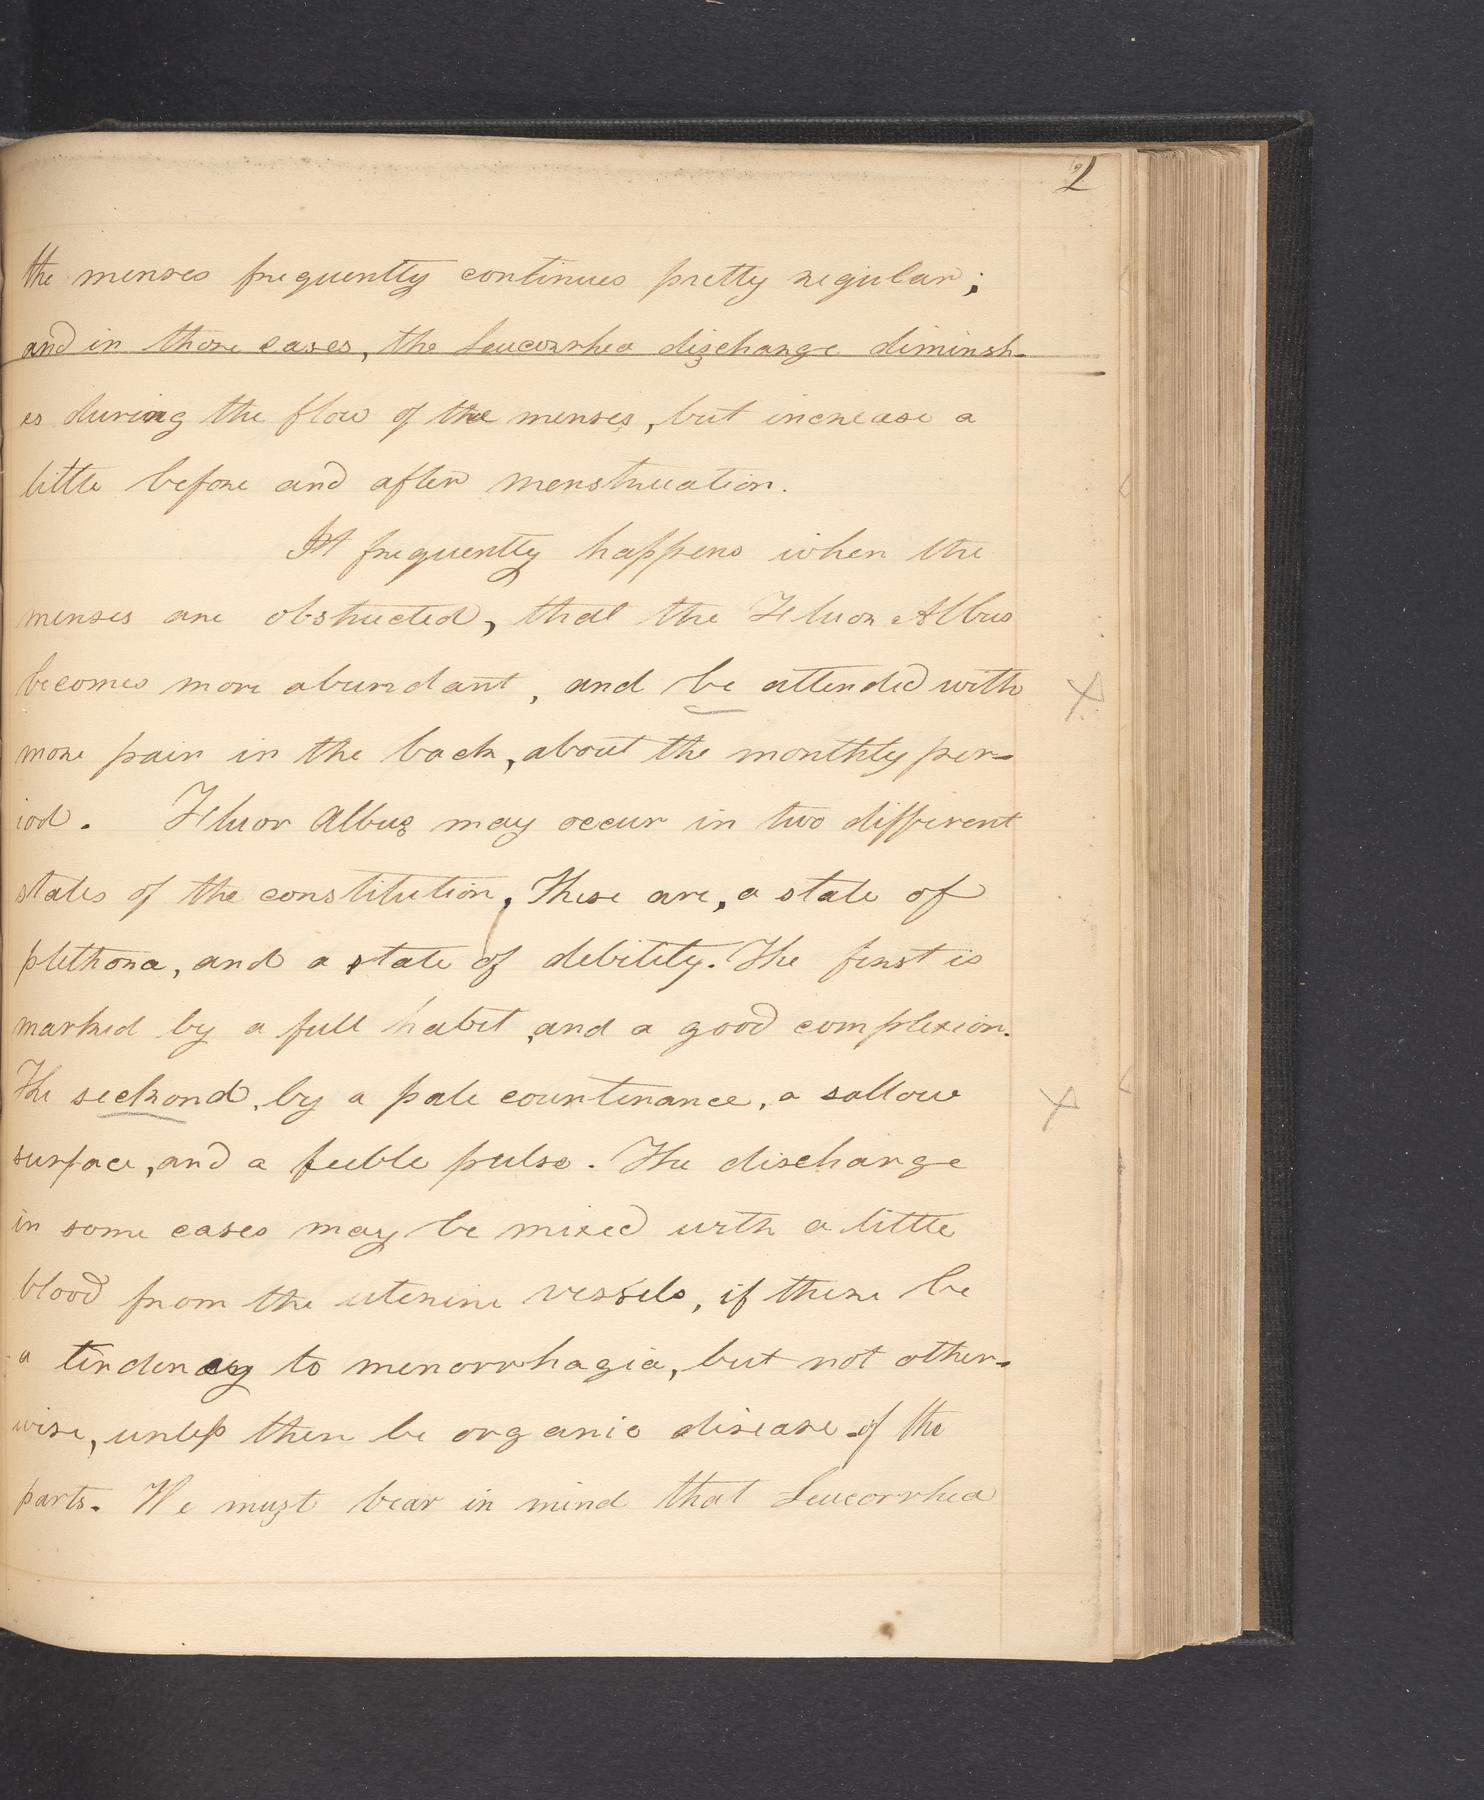 2
the menses frequently continues pretty regular;
and in those cases, the Leucorrhea discharge diminsh-
es during the flow of the menses, but increase a
little before and after menstruation.
It frequently happens when the
menses are obstructed, that the Fluor Albus
becomes more abundant, and be attended with
more pain in the back, about the monthly per-
iod. Fluor Albus may occur in two different
states of the constitution, These are, a state of
plethora, and a state of debility. The first is
marked by a full habit, and a good complexion.
The seckond, by a pale countenance, a sallow
surface, and a feeble pulse. The discharge
in some cases may be mixed with a little
blood from the uterine vessels, if there be
a tendency to menorrhagia, but not other-
wise, unless there be organic disease of the
parts. We must bear in mind that Leucorrhea